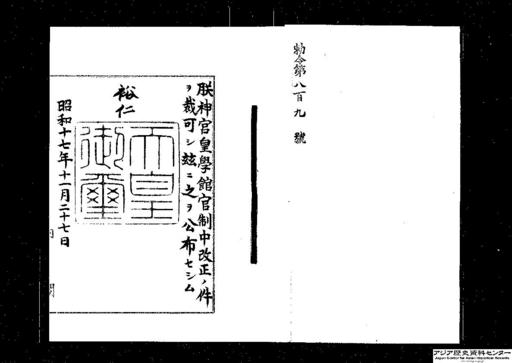 勅令第八百九號
朕神宮皇學館官制中改正ノ件
ヲ裁可シ茲ニ之ヲ公布セシム
裕仁
天皇
御璽
昭和十七年十一月二十七日
アジア歴史資料センター
Japan Center for Asian Historical Records